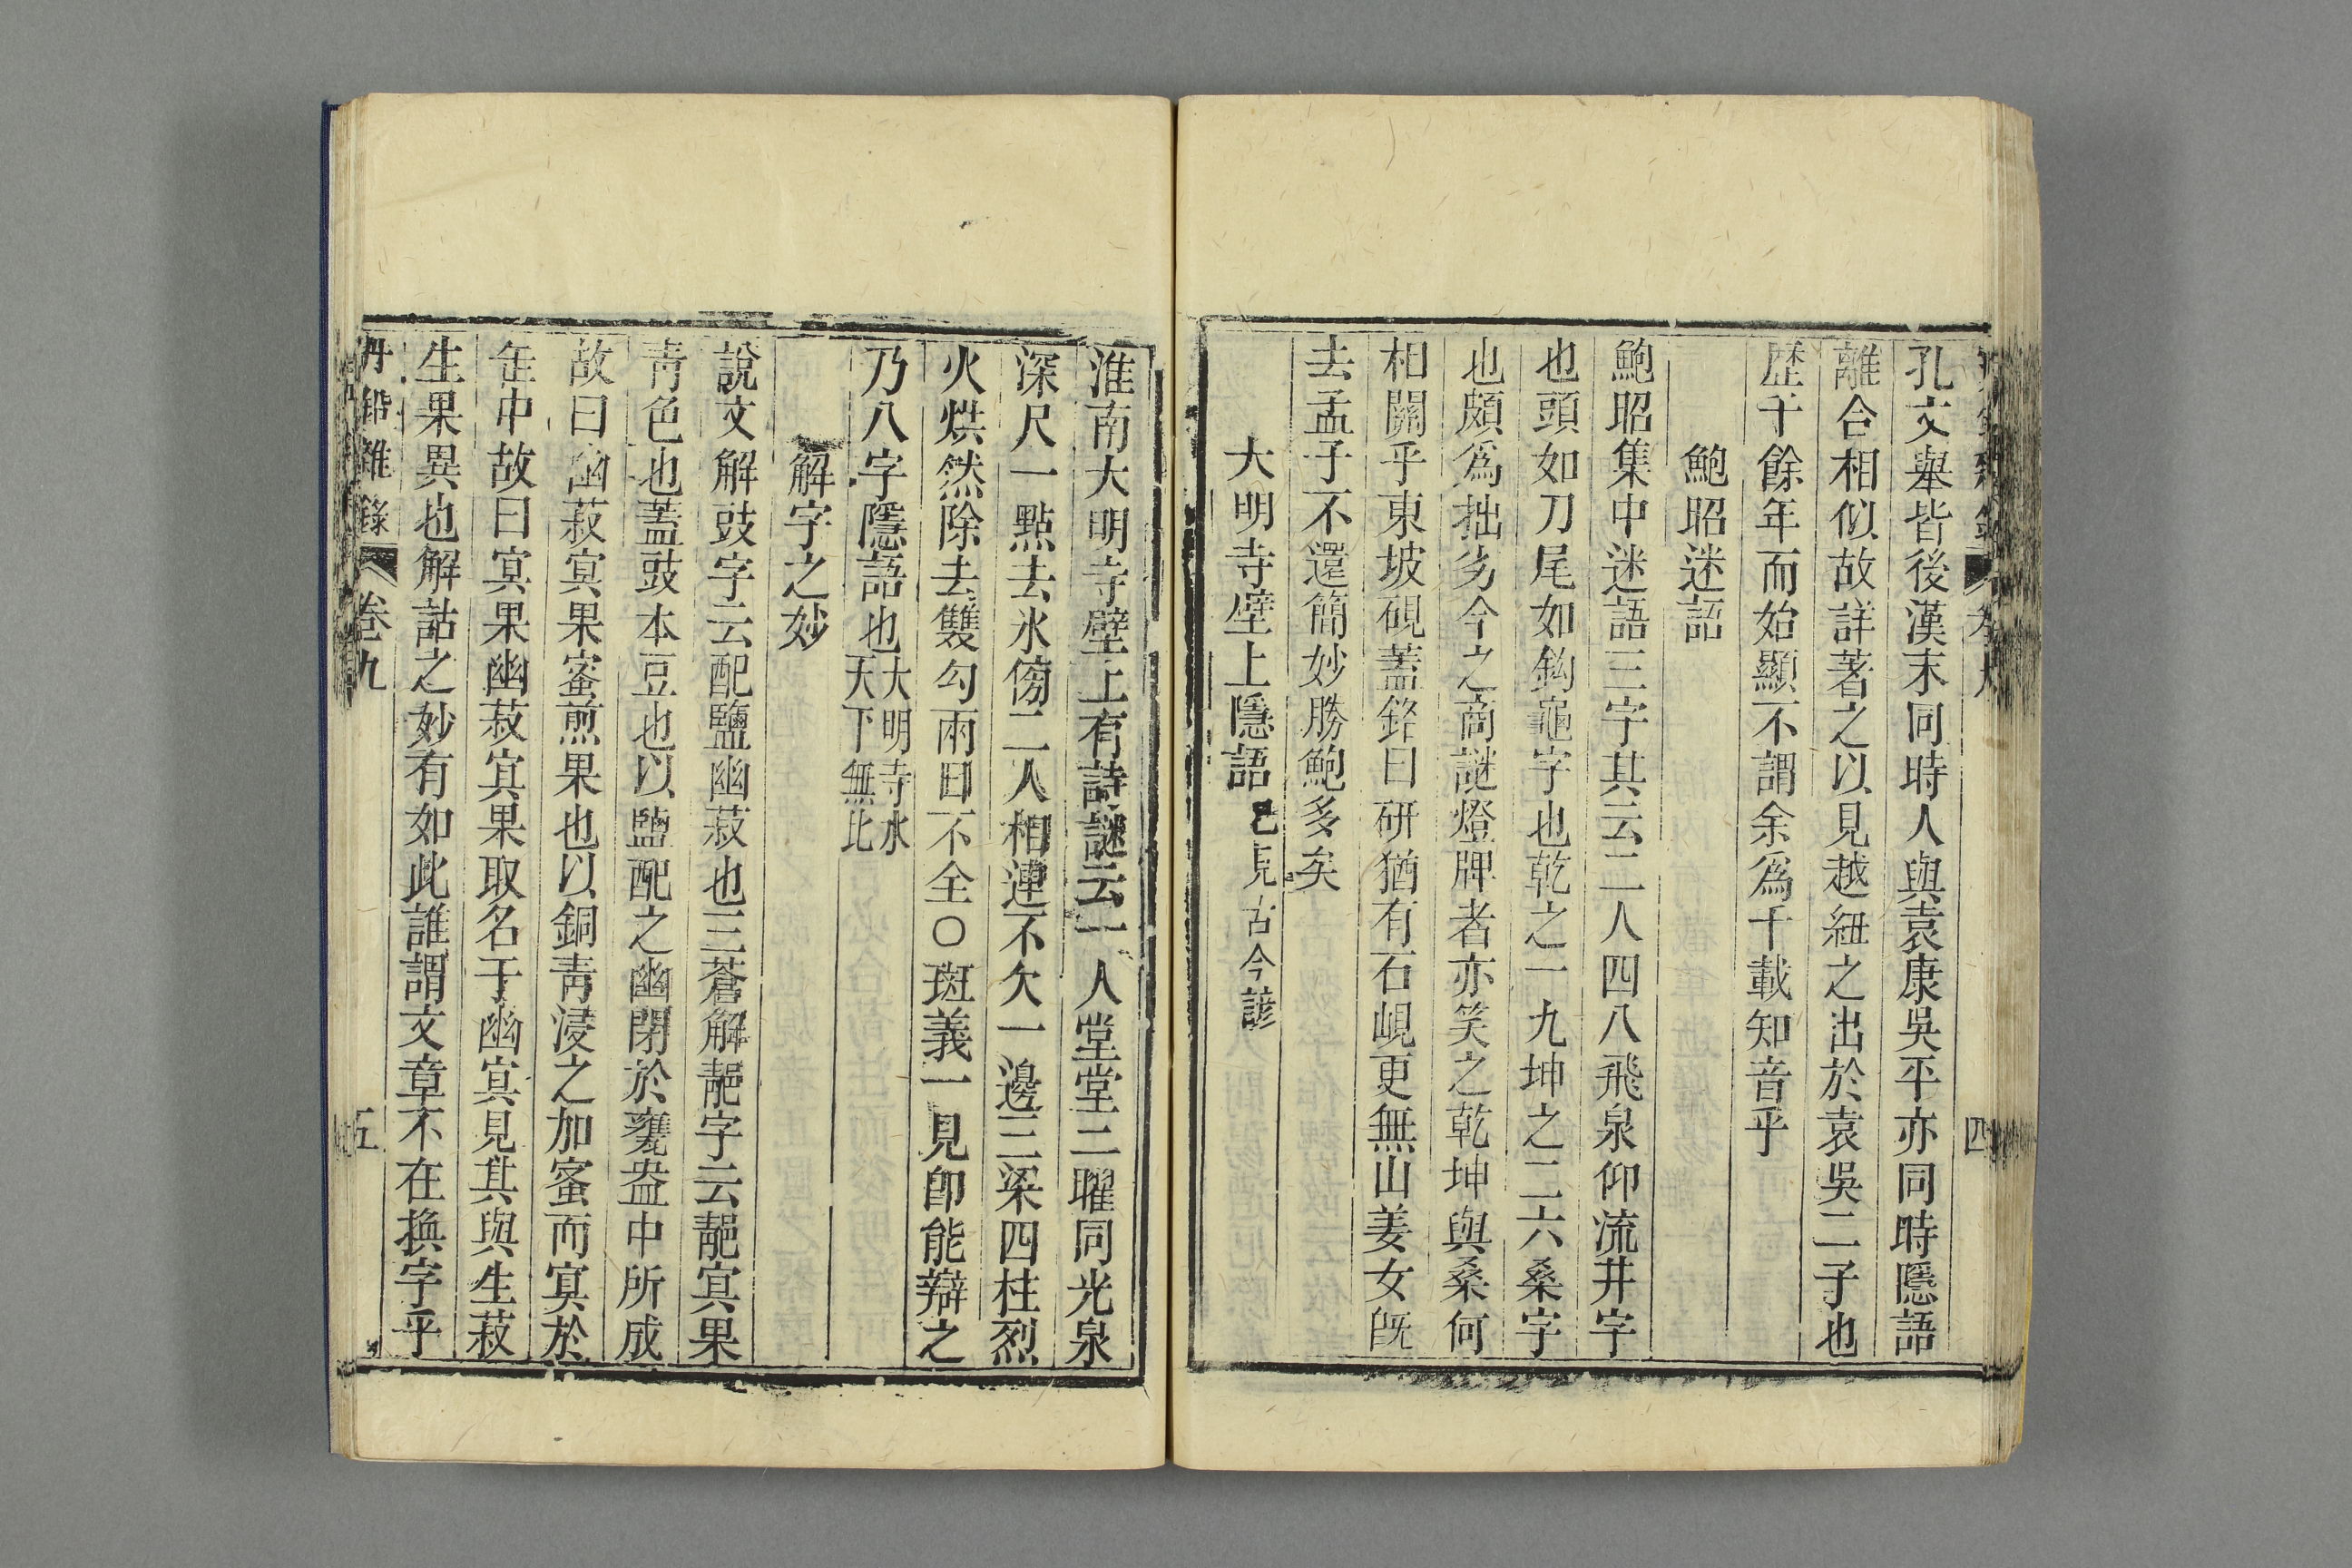 孔文舉皆後漢末同時人與袁康吳平亦同時隱語
離合相似故詳著之以見越紐之出於袁吳二子也
歷千餘年而始顯不謂余爲千載知音乎
鮑昭迷語
鮑昭集中迷語三字其云二人四八飛泉仰流井字
也頭如刀尾如鈎龜字也乾之一九坤之二六桑字
也頗爲拙劣今之商謎燈牌者亦笑之乾坤與桑何
相關乎東坡硯蓋銘曰研猶有石峴更無山姜女旣
去孟子不還簡妙勝鮑多矣
大明寺壁上隱語已見古今諺
四
淮南大明寺壁上有詩謎云一人堂堂二曜同光泉
深尺一點去氷傍二人相連不欠一邊三梁四柱烈
火烘然除去雙勾兩日不全○斑義一見卽能辯之
乃八字隱語也大明寺水天下無比
解字之妙
說文解豉字云配鹽幽菽也三蒼解䒌字云䒌㝠果
靑色也蓋豉本豆也以鹽配之幽閉於甕盎中所成
故曰幽菽㝠果蜜煎果也以銅靑浸之加蜜而㝠於
缶中故曰㝠果幽菽㝠果取名于幽㝠見其與生菽
生果異也解詁之妙有如此誰謂文章不在換字乎
丹鉛雜錄 卷九 五